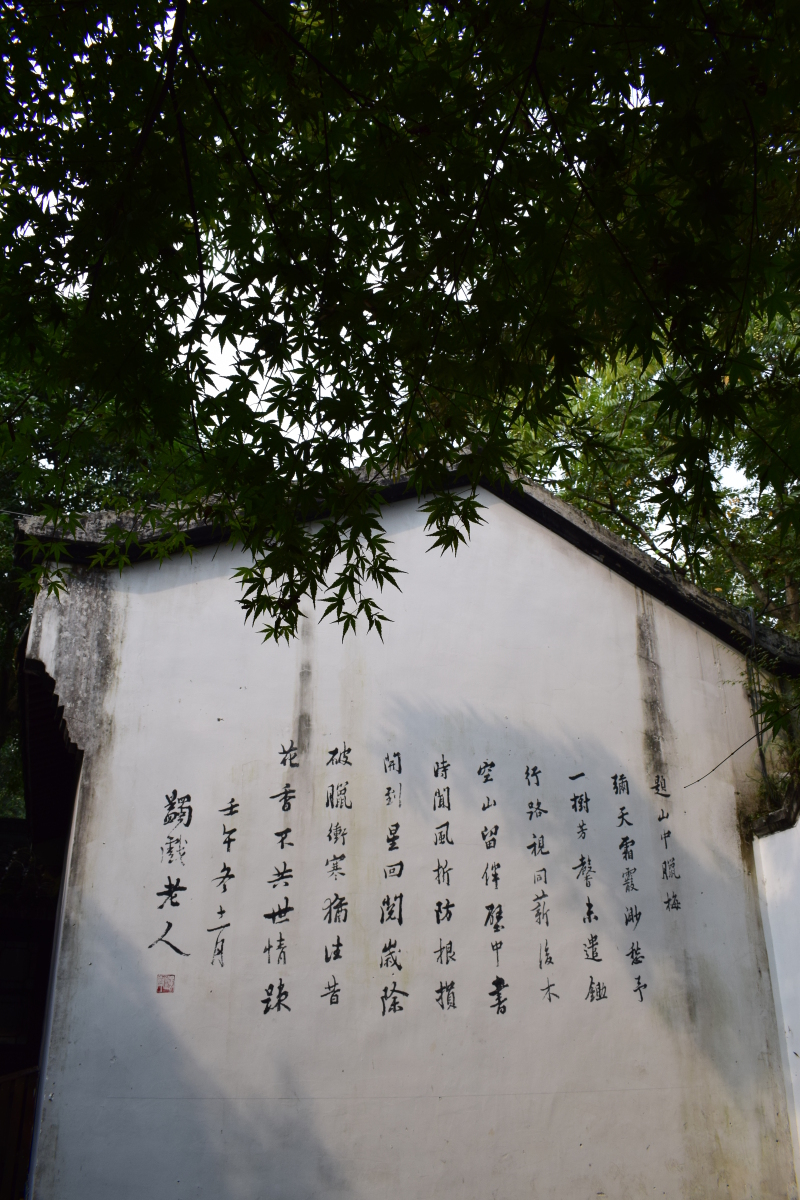 題山中臘梅
彌天霜霰渺愁予
一樹芳馨未遣鋤
行路視同薪後木
空山留伴壁中書
時聞風折防根損
開到星回閱歲除
破臘衝寒猶往昔
花香不共世情疎
壬午冬十二月
蠲戲老人